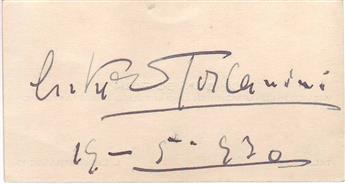 Arturo Toscanini
19 - 5 - 930